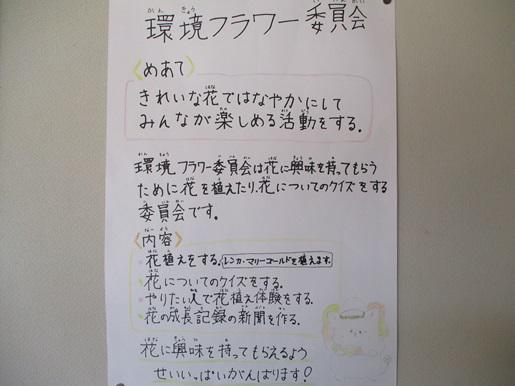 環境フラワー委員会
〈めあて〉
きれいな花ではなやかにして
みんなが楽しめる活動をする.
環境フラワー委員会は花に興味を持ってもらう
ために花を植えたり、花についてのクイズをする
委員会です。
〈内容〉
花植えをする.レンカ・マリーゴールドを植えます.
花についてのクイズをする.
やりたい人で花植え体験をする.
花の成長記録の新聞を作る.
花に興味を持ってもらえるよう
せいいっぱいがんばります!